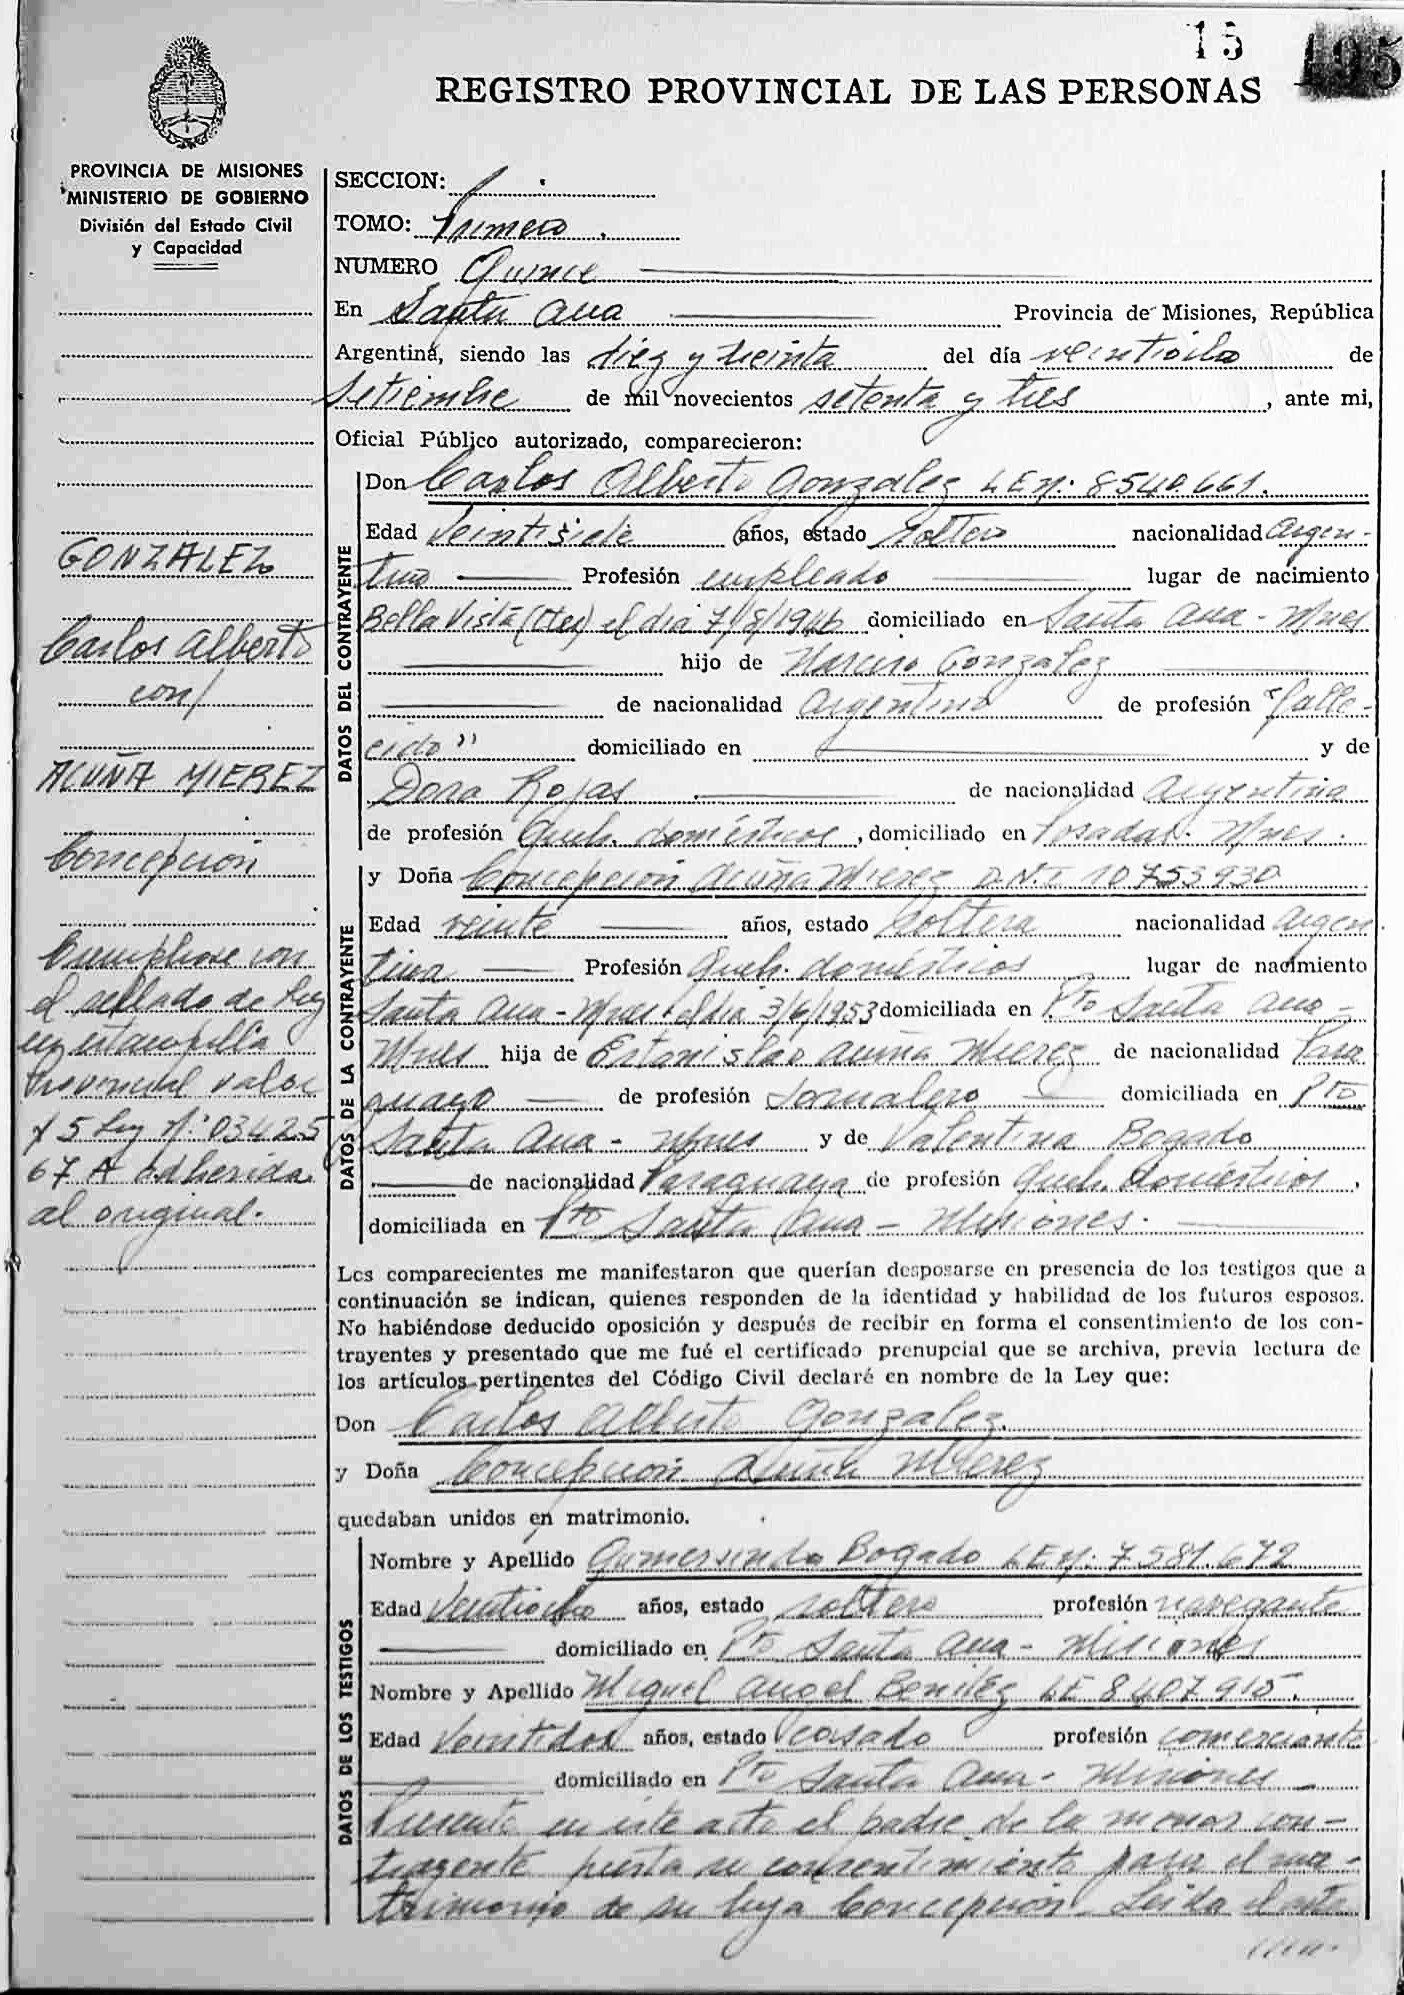 15 195
REGISTRO PROVINCIAL DE LAS PERSONAS
PROVINCIA DE MISIONES
MINISTERIO DE GOBIERNO
División del Estado Civil
y Capacidad
GONZALEZ
Carlos Alberto
con/
ACUÑA MIEREZ
Concepción
Cumplióse con
el sellado de Ley
en estampilla
Provincial valor
$ 5 Ley Nº 03425
67 A adherida
al original.
SECCION:
TOMO: Primero.
NUMERO Quince
En Santa Ana Provincia de Misiones, República
Argentina, siendo las diez y treinta del día veintiocho de
Setiembre de mil novecientos setenta y tres, ante mi,
Oficial Público autorizado, comparecieron:
DATOS DEL CONTRAYENTE
Don Carlos Alberto Gonzalez LE Nº 8540.661.
Edad Veintisiete años, estado Soltero nacionalidad Argen-
tino Profesión empleado lugar de nacimiento
Bella Vista (Ctes) el dia 7/8/1946 domiciliado en Santa Ana - Mnes
hijo de Narciso Gonzalez
de nacionalidad Argentino de profesión "falle-
cido" domiciliado en y de
Dora Rojas de nacionalidad Argentina
de profesión Queh. domésticos, domiciliado en Posadas. Mnes.
DATOS DE LA CONTRAYENTE
y Doña Concepción Acuña Mierez D.N.I 10753930
Edad veinte años, estado Soltera nacionalidad Argen
tina Profesión Queh. domésticos lugar de nacimiento
Santa Ana - Mnes. el dia 3/6/1953 domiciliada en Pto Santa Ana -
Mnes hija de Estanislao Acuña Mierez de nacionalidad Para
guayo de profesión Jornalero domiciliado en Pto
Santa Ana - Mnes y de Valentina Bogado
de nacionalidad Paraguaya de profesión Queh. Domésticos,
domiciliada en Pto Santa Ana - Misiones.
Los comparecientes me manifestaron que querían desposarse en presencia de los testigos que a
continuación se indican, quienes responden de la identidad y habilidad de los futuros esposos.
No habiéndose deducido oposición y después de recibir en forma el consentimiento de los con-
trayentes y presentado que me fué el certificado prenupcial que se archiva, previa lectura de
los artículos pertinentes del Código Civil declaré en nombre de la Ley que:
Don Carlos Alberto Gonzalez.
y Doña Concepción Acuña Mierez
quedaban unidos en matrimonio.
DATOS DE LOS TESTIGOS
Nombre y Apellido Gumersindo Bogado LE Nº 7.581.672
Edad Veintiocho años, estado soltero profesión navegante
domiciliado en Pto Santa Ana - Misiones
Nombre y Apellido Miguel Angel Benitez LE 8407915.
Edad Veintidos años, estado casado profesión comerciante
domiciliado en Pto Santa Ana - Misiones
Presente en este acto el padre de la menor con-
trayente presta su consentimiento para el ma-
trimonio de su hija Concepción. Leida el acta